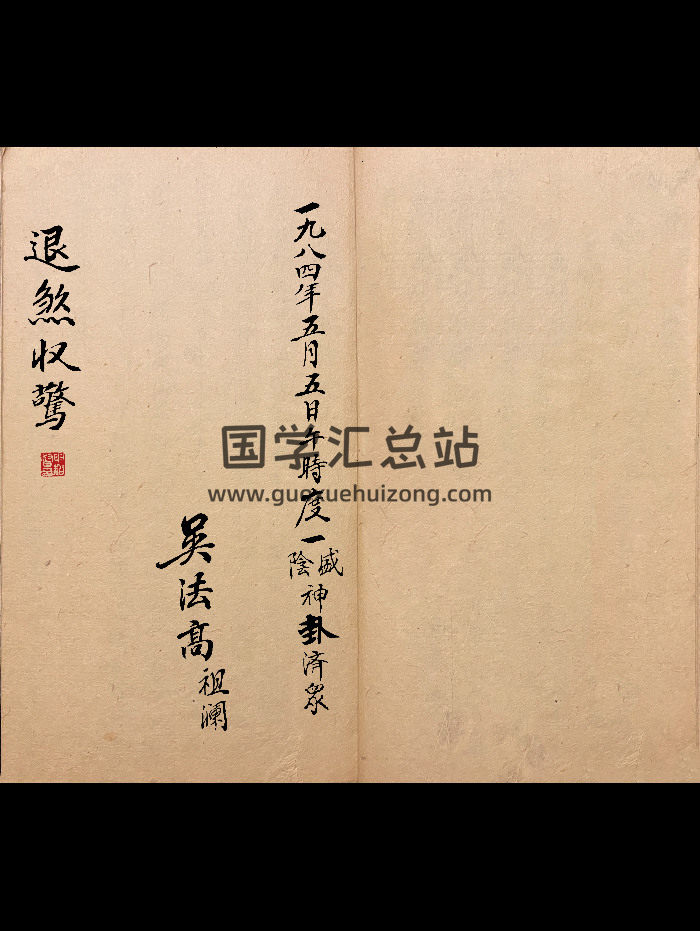 一九八四年五月五日午時度一盛陰神卦済眾
吳法高祖瀾
退煞收驚
国学汇总站
www.guoxuehuizong.com